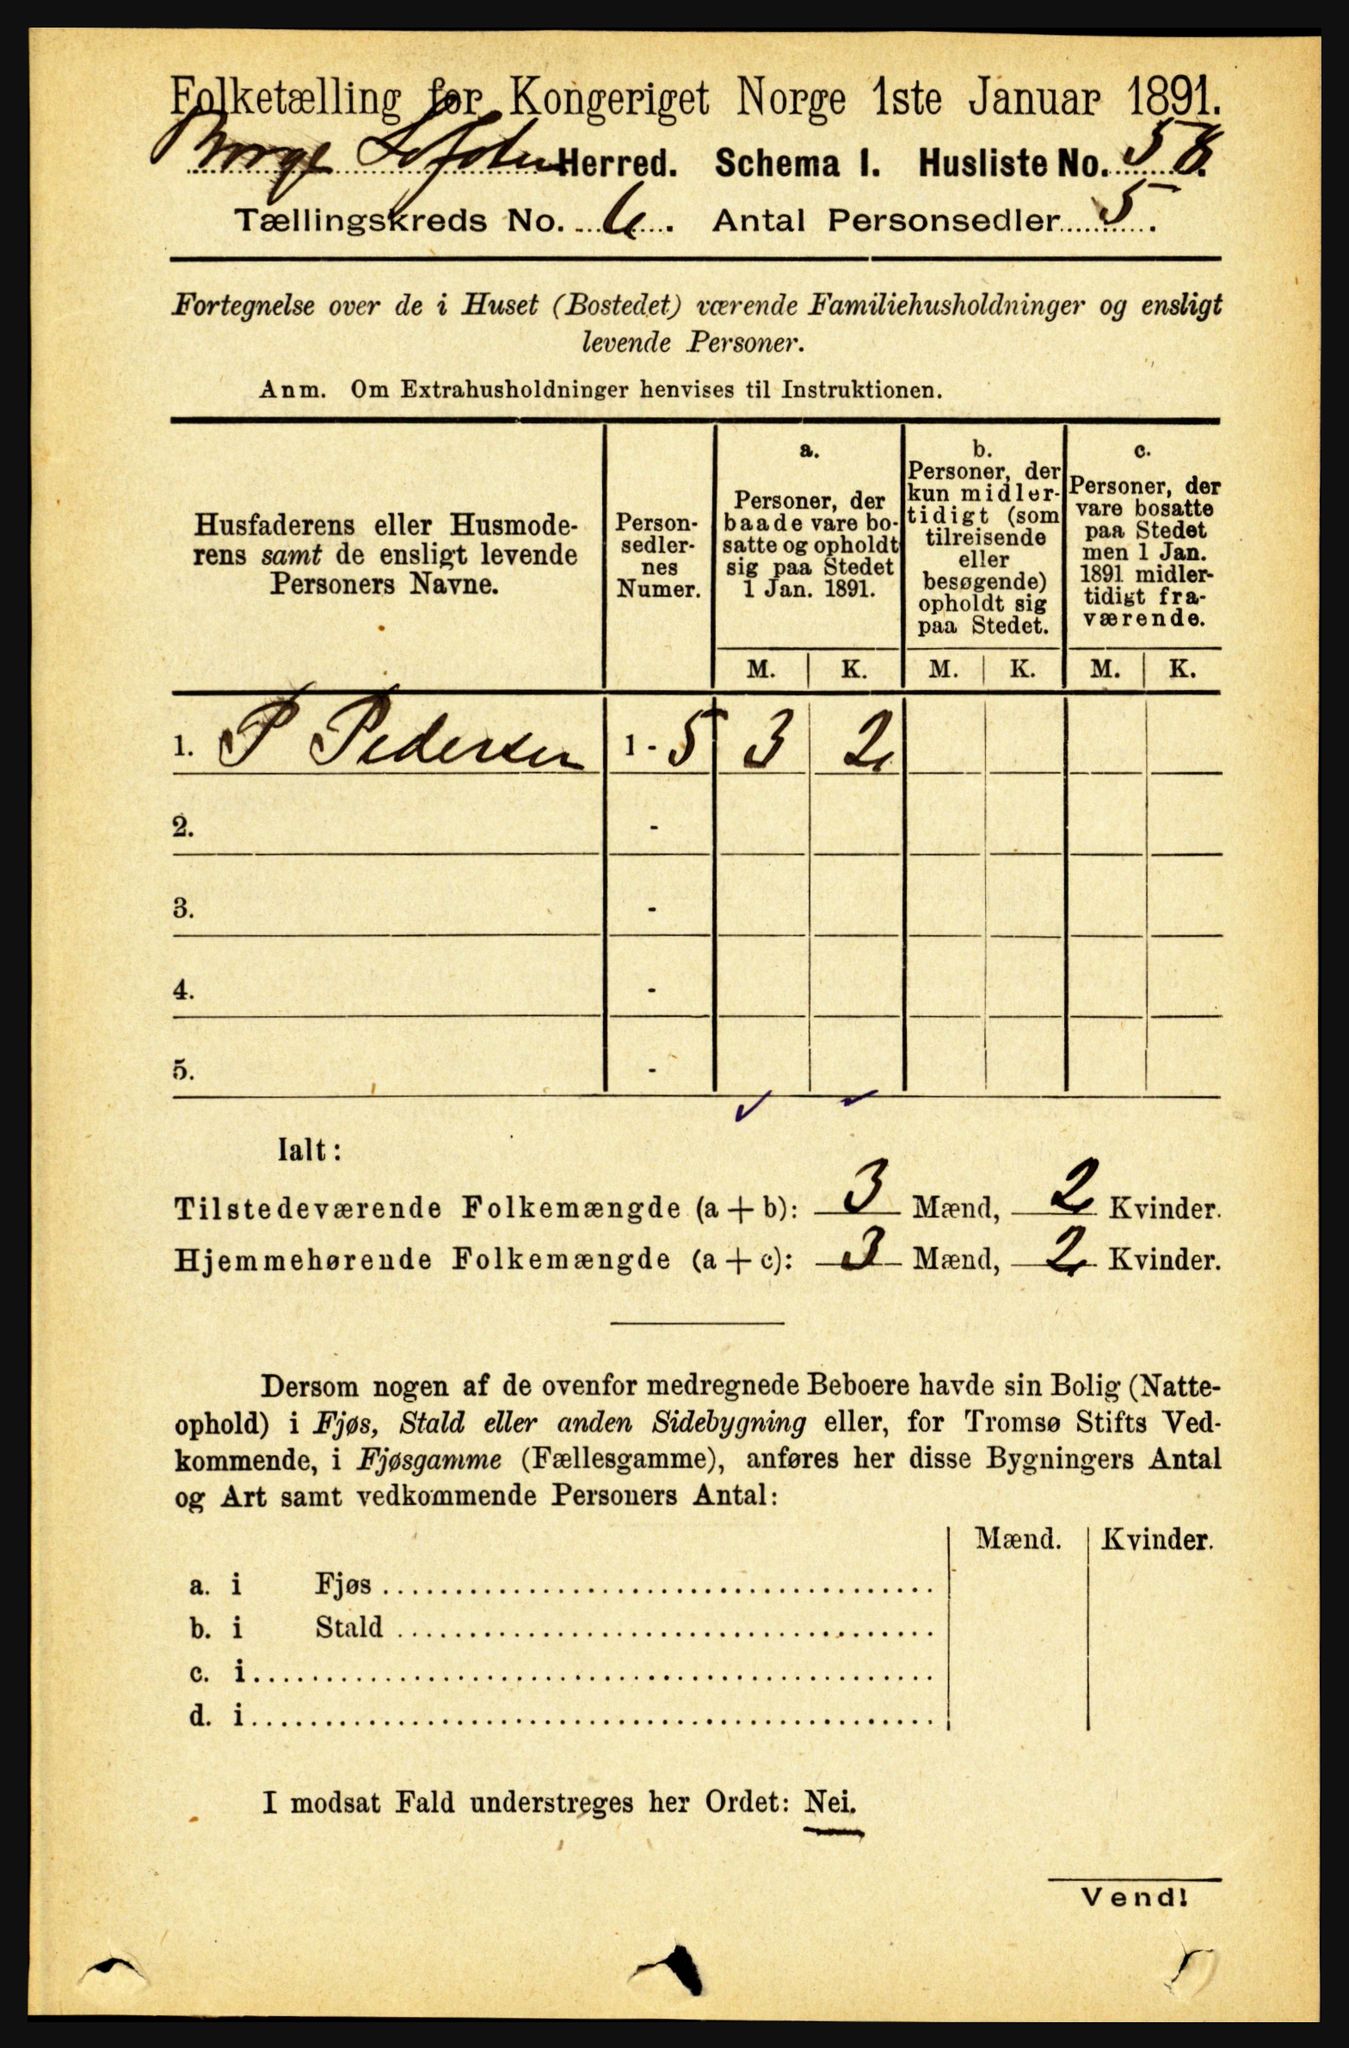 Folketælling for Kongeriget Norge 1ste Januar 1891.
Borge Lofoten Herred. Schema I. Husliste No. 58.
Tællingskreds No. 6. Antal Personsedler 5.
Fortegnelse over de i Huset (Bostedet) værende Familiehusholdninger og ensligt
levende Personer.
Anm. Om Extrahusholdninger henvises til Instruktionen.
Husfaderens eller Husmode-
rens samt de ensligt levende
Personers Navne.
Person-
sedler-
nes
Numer.
a.
Personer, der
baade vare bo-
satte og opholdt
sig paa Stedet
1 Jan. 1891.
b.
Personer, der
kun midler-
tidigt (som
tilreisende
eller
besøgende)
opholdt sig
paa Stedet.
c.
Personer, der
vare bosatte
paa Stedet
men 1 Jan.
1891 midler-
tidigt fra-
værende.
M. K. M. K. M. K.
1. P Pedersen 1 - 5 3 2
2. -
3. -
4. -
5. -
Ialt:
Tilstedeværende Folkemængde (a + b): 3 Mænd, 2 Kvinder.
Hjemmehørende Folkemængde (a + c): 3 Mænd, 2 Kvinder.
Dersom nogen af de ovenfor medregnede Beboere havde sin Bolig (Natte-
ophold) i Fjøs, Stald eller anden Sidebygning eller, for Tromsø Stifts Ved-
kommende, i Fjøsgamme (Fællesgamme), anføres her disse Bygningers Antal
og Art samt vedkommende Personers Antal:
Mænd. Kvinder.
a. i Fjøs
b. i Stald
c. i
d. i
I modsat Fald understreges her Ordet: Nei.
Vend!